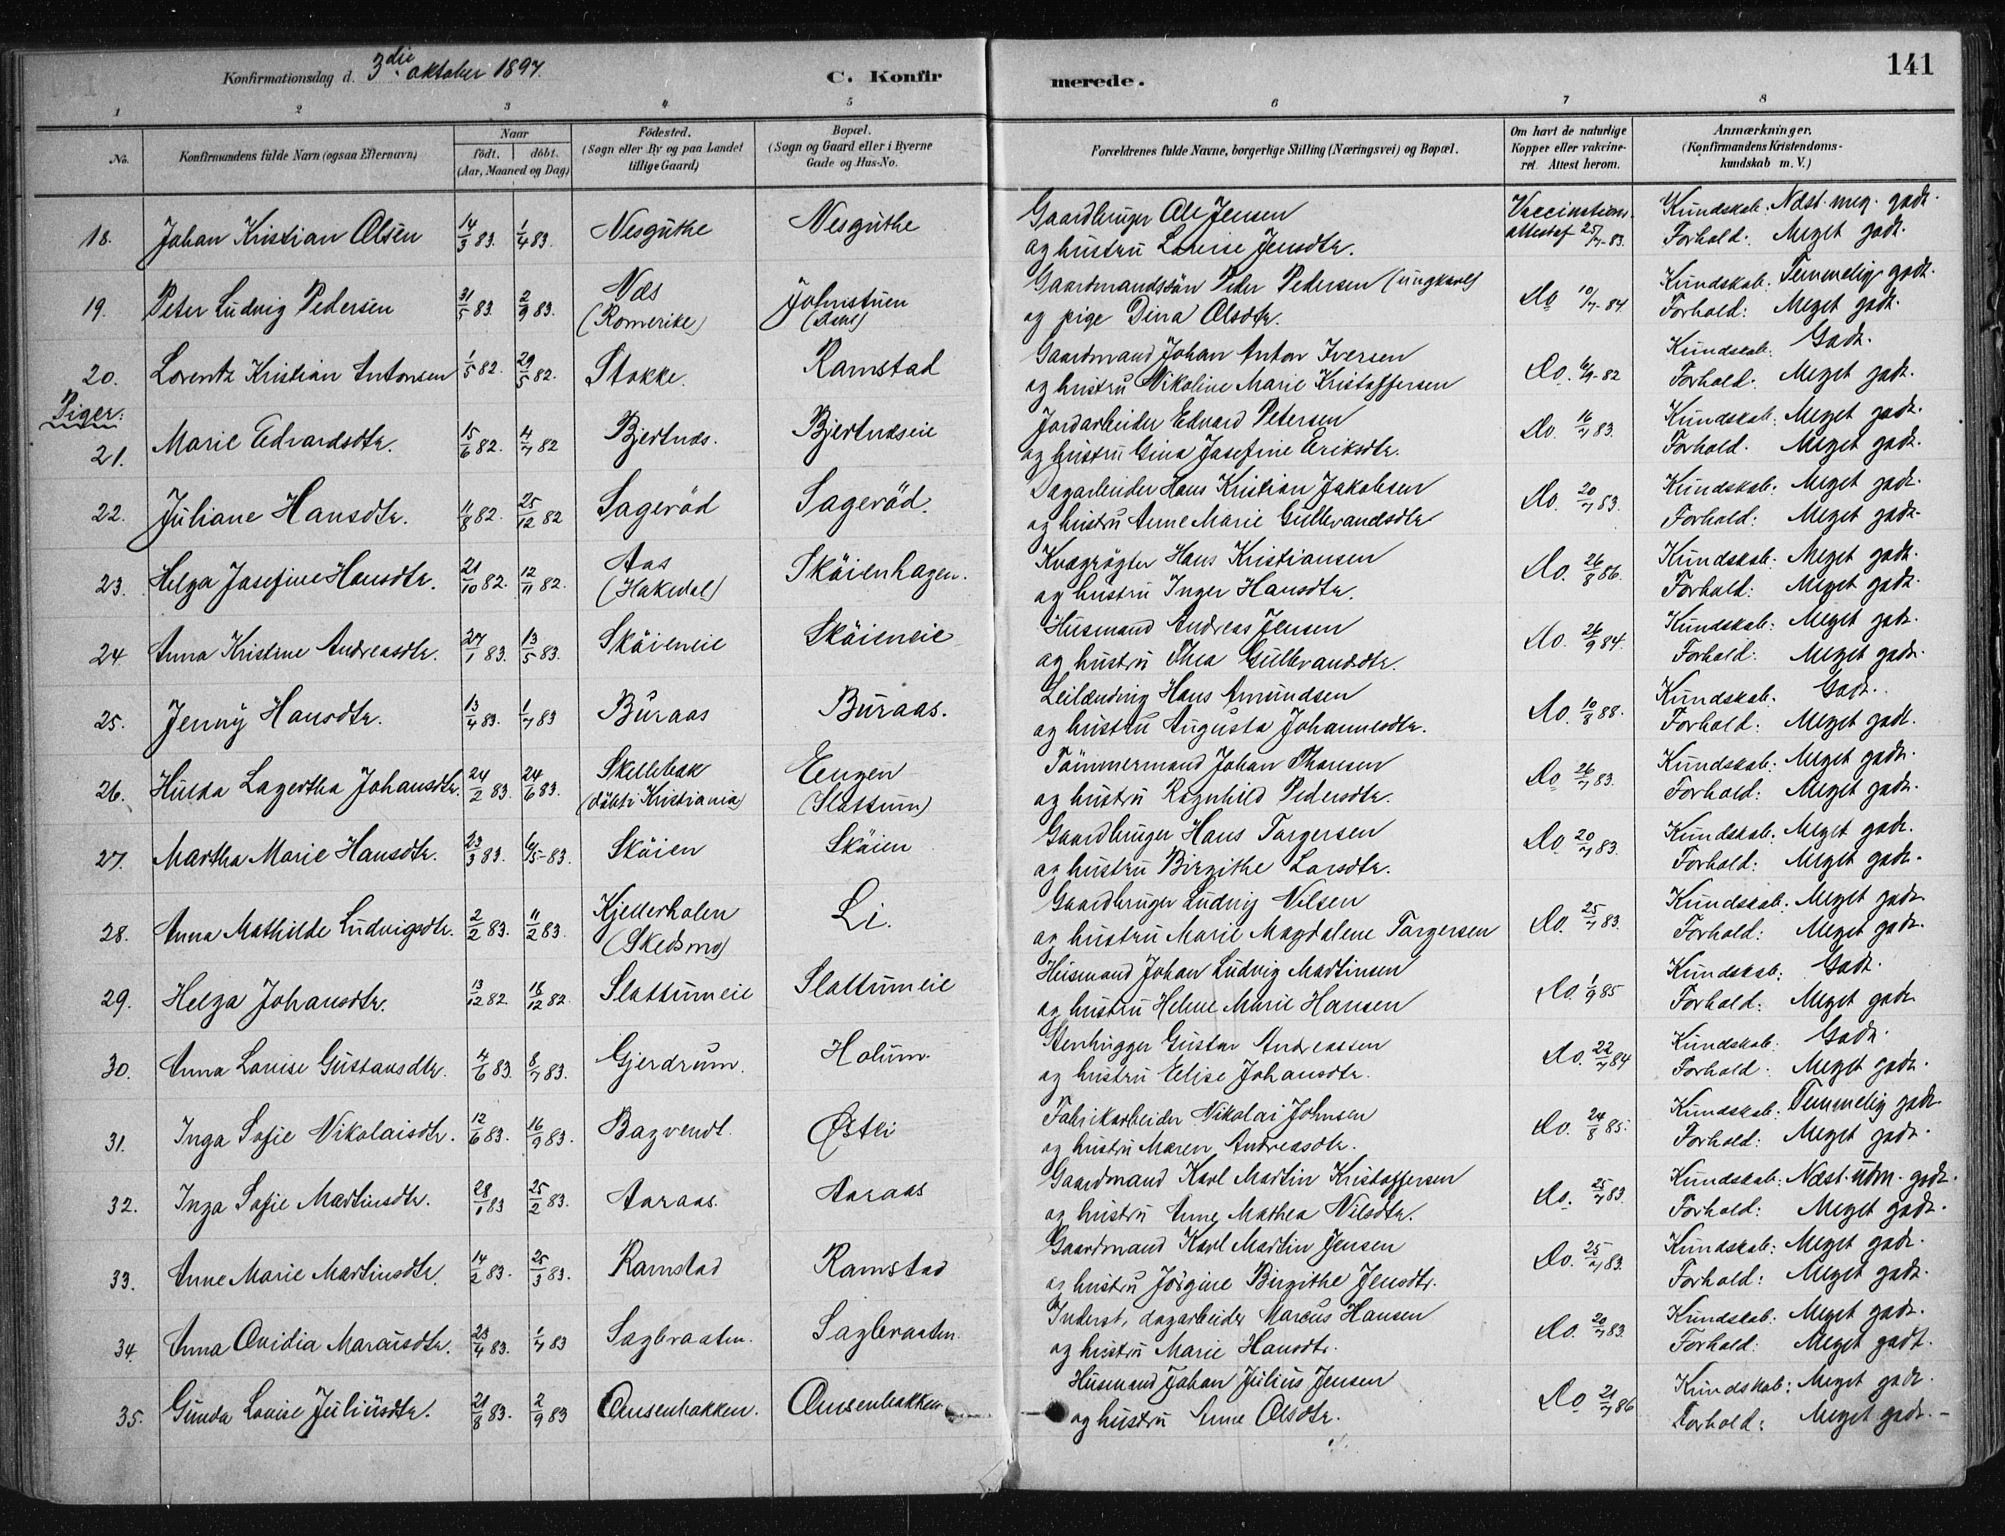 Konfirmationsdag d. 3die oktober 1897.
C. Konfirmerede.
141
1 2 3 4 5 6 7 8
No. Konfirmandens fulde Navn (ogsaa Efternavn)
Naar
födt. döbt.
(Aar, Maaned og Dag)
Födested.
(Sogn eller By og paa Landet
tillige Gaard)
Bopæl.
(Sogn og Gaard eller i Byerne
Gade og Hus-No.
Forældrenes fulde Navne, borgerlige Stilling (Næringsvei) og Bopæl.
Om havt de naturlige
Kopper eller vakcine-
ret. Attest herom.
Anmærkninger.
(Konfirmandens Kristendoms-
kundskab m. V.)
18. Johan Kristian Olsen 14/3 83. 1/4 83. Nesguthe Nesguthe Gaardbruger Ole Jensen Vaccinations- Kundskab: Næst. meg. godt.
og hustru Lovise Jensdtr. attestaf 25/7-83. Forhold: Meget godt.
19. Peter Ludvig Pedersen 31/5 83. 2/9 83. Næs (Romerike) Johnstuen Gaardmandssön Peder Pedersen (ungkarl) Do 10/7-84 Kundskab: Temmelig godt.
og pige Dina Olsdtr. Forhold: Meget godt.
20. Lorentz Kristian Antonsen 1/5 82. 29/5 82. Stokke. Ramstad Gaardmand Johan Anton Iversen Do. 6/9-82 Kundskab: Godt.
og hustru Nikoline Marie Kristoffersen Forhold: Meget godt.
Piger:
21. Marie Edvardsdtr. 15/6 82. 4/7 82 Bjertnæs. Bjertnæseie Jordarbeider Edvard Petersen Do. 16/7 83. Kundskab: Meget godt.
og hustru Gina Josefine Eriksdtr. Forhold: Meget godt.
22. Juliane Hansdtr. 11/8 82. 25/12 82 Sageröd Sageröd. Dagarbeider Hans Kristian Jakobsen Do. 20/7 83. Kundskab: Meget godt.
og hustru Anne Marie Gulbrandsdtr Forhold: Meget godt.
23. Helga Josefine Hansdtr. 21/10 82. 12/11 82. Aas (Hakedal) Sköienhagen. Kvægrögter Hans Kristiansen Do. 26/8 86. Kundskab: Meget godt.
og hustru Inger Hansdtr. Forhold: Meget godt.
24 Anna Kristine Andreasdtr. 27/1 83. 13/5 83. Sköieneie Sköieneie Husmand Andreas Jensen Do. 26/9 84. Kundskab: Meget godt.
og hustru Thea Gulbrandsdtr. Forhold: Meget godt.
25. Jenny Hansdtr. 13/4 83. 1/7 83 Buraas Buraas. Leilænding Hans Amundsen Do. 10/8 88. Kundskab. Godt.
og hustru Augusta Johannesdtr. Forhold: Meget godt.
26. Hulda Lagertha Johansdtr. 24/2 83. 24/6 83. Skillebæk (döbt i Kristiania) Engen (Slattum) Tömmermand Johan Thonsen Do 26/7 83. Kundskab: Meget godt.
og hustru Ragnhild Pedersdtr. Forhold: Meget godt.
27. Martha Marie Hansdtr. 23/3 83. 6/5-83. Sköien Sköien Gaardbruger Hans Torgersen Do 20/7 83. Kundskab: Meget godt.
og hustru Birgithe Larsdtr. Forhold: Meget godt.
28. Anna Mathilde Ludvigsdtr. 2/2 83. 11/2 83. Kjellerholen (Skedsmo) Li. Gaardbruger Ludvig Nilsen Do. 25/7 83. Kundskab: Meget godt.
og hustru Marie Magdalene Torgersen Forhold: Meget godt.
29. Helga Johansdtr. 13/12 82 16/12 82. Slattumeie Slattumeie Husmand Johan Ludvig Martinsen Do. 1/9 85 Kundskab: Godt.
og hustru Helene Marie Hansen Forhold: Meget godt
30. Anna Lovise Gustavsdtr. 4/6 83. 8/7 83. Gjerdrum. Holum. Stenhugger Gustav Andreassen Do. 22/7 84 Kundskab. Godt.
og hustru Elise Johansdtr. Forhold. Meget godt.
31. Inga Sofie Nikolaisdtr. 12/6 83. 16/9 83. Bagvendt. Østbi Fabrikarbeider Nikolai Johnsen Do. 24/8 85. Kundskab: Temmelig godt
og hustru Maren Andreasdtr. Forhold: Meget godt.
32. Inga Sofie Martinsdtr. 28/1 83 25/2 83. Aaraas. Aaraas Gaardmand Karl Martin Kristoffersen Do. 25/7 83 Kundskab: Næst. udm. godt.
og hustru Anne Mathea Nilsdtr. Forhold: Meget godt.
33. Anne Marie Martinsdtr. 14/2 83. 25/3 83. Ramstad Ramstad Gaardmand Karl Martin Jensen Do. 25/7 83. Kundskab: Meget godt.
og hustru Jörgine Birgithe Jensdtr. Forhold: Meget godt.
34. Anna Ovidia Marcusdtr. 23/4 83. 1/7 83 Sagbraaten. Sagbraaten. Inderst, dagarbeider Marcus Hansen Do. 20/7 83. Kundskab: Meget godt.
og hustru Marie Hansdtr. Forhold: Meget godt.
35. Gunda Lovise Juliusdtr. 21/8 83. 2/9 83 Aasenbakken. Aasenbakken Husmand Johan Julius Jensen Do 21/7 86 Kundskab: Meget godt.
og hustru Anne Olsdtr. Forhold: Meget godt.